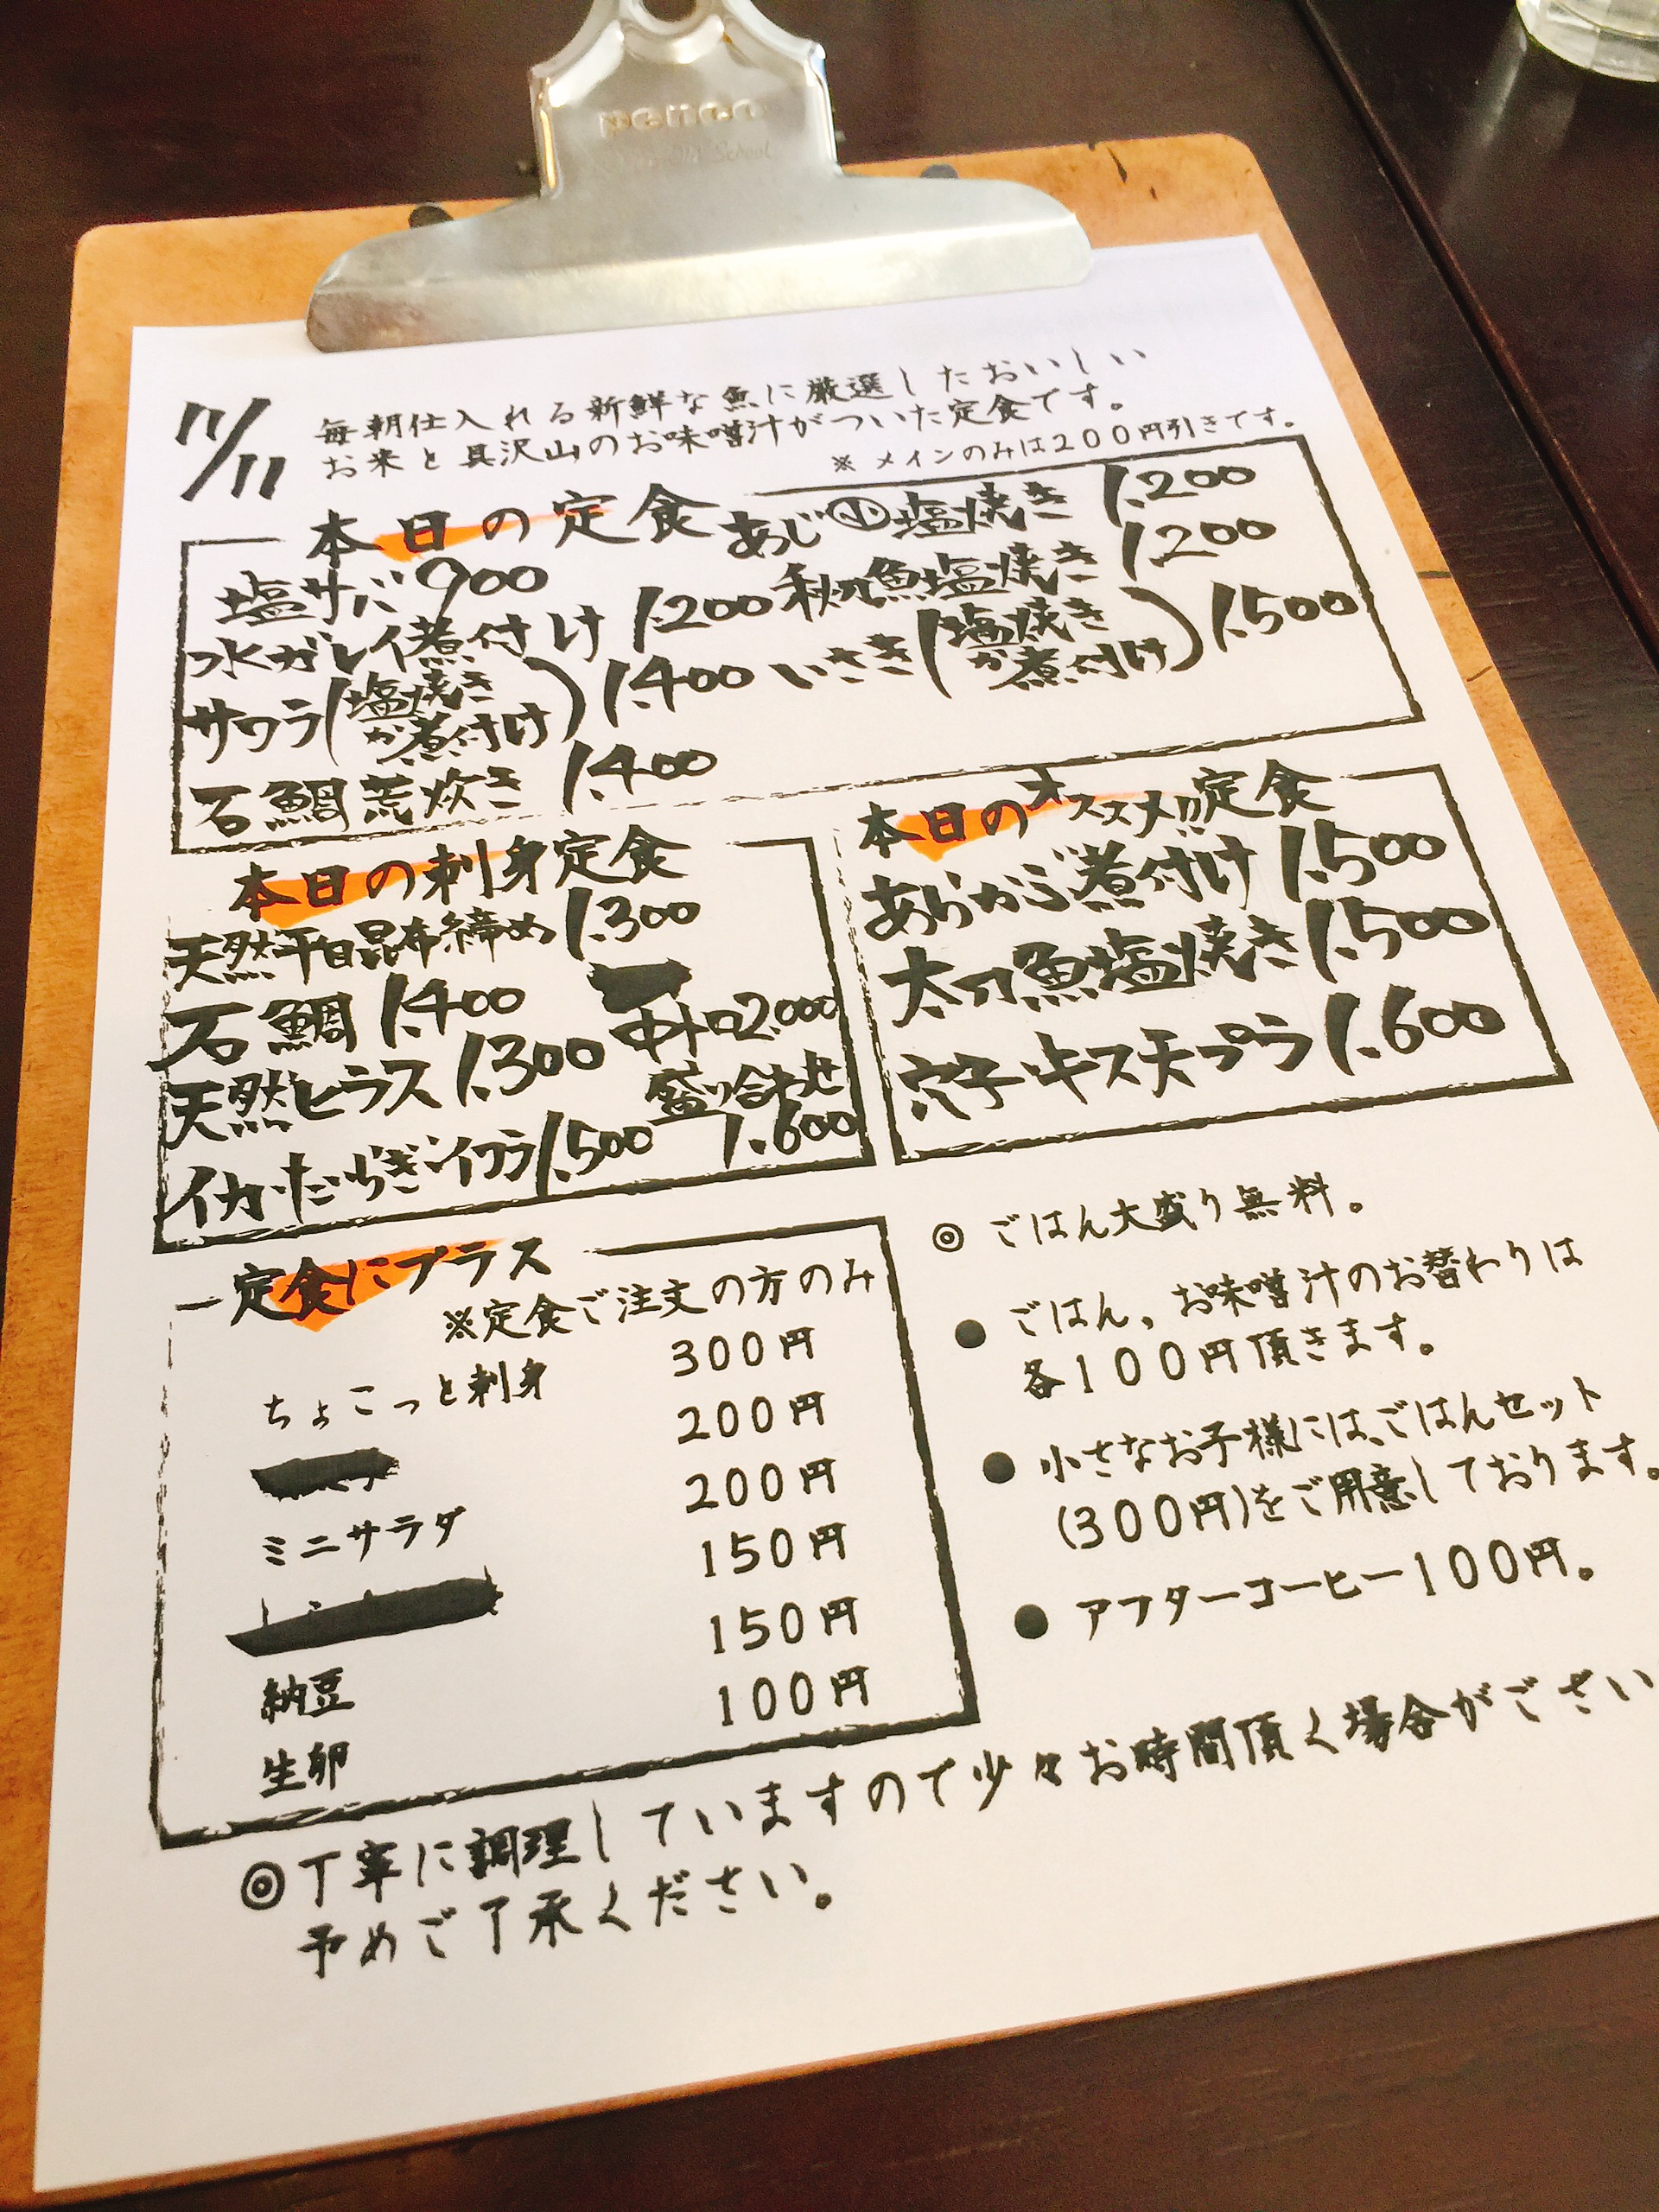 penco
Old School
11/11
毎朝仕入れる新鮮な魚に厳選したおいしい
お米と具沢山のお味噌汁がついた定食です。
※メインのみは200円引きです。
本日の定食
塩サバ 900
水ガレイ煮付け 1.200
サワラ(塩焼きか煮付け) 1.400
石鯛荒炊き 1.400
あじ小塩焼き 1.200
秋刀魚塩焼き 1.200
いさき(塩焼きか煮付け) 1.500
本日の刺身定食
天然平目昆布締め 1.300
石鯛 1.400
天然ヒラス 1.300
イカ・たいらぎ・イワラ 1.500
中トロ 2.000
盛り合わせ
1.600
本日のオススメ!!定食
あらかぶ煮付け 1.500
太刀魚塩焼き 1.500
穴子・キス天プラ 1.600
定食にプラス
※定食ご注文の方のみ
ちょこっと刺身 300円
200円
ミニサラダ 200円
150円
納豆 150円
生卵 100円
◎ ごはん大盛り無料。
● ごはん、お味噌汁のお替わりは
各100円頂きます。
● 小さなお子様には、ごはんセット
(300円)をご用意しております。
● アフターコーヒー100円。
◎丁寧に調理していますので少々お時間頂く場合がござい
予めご了承ください。